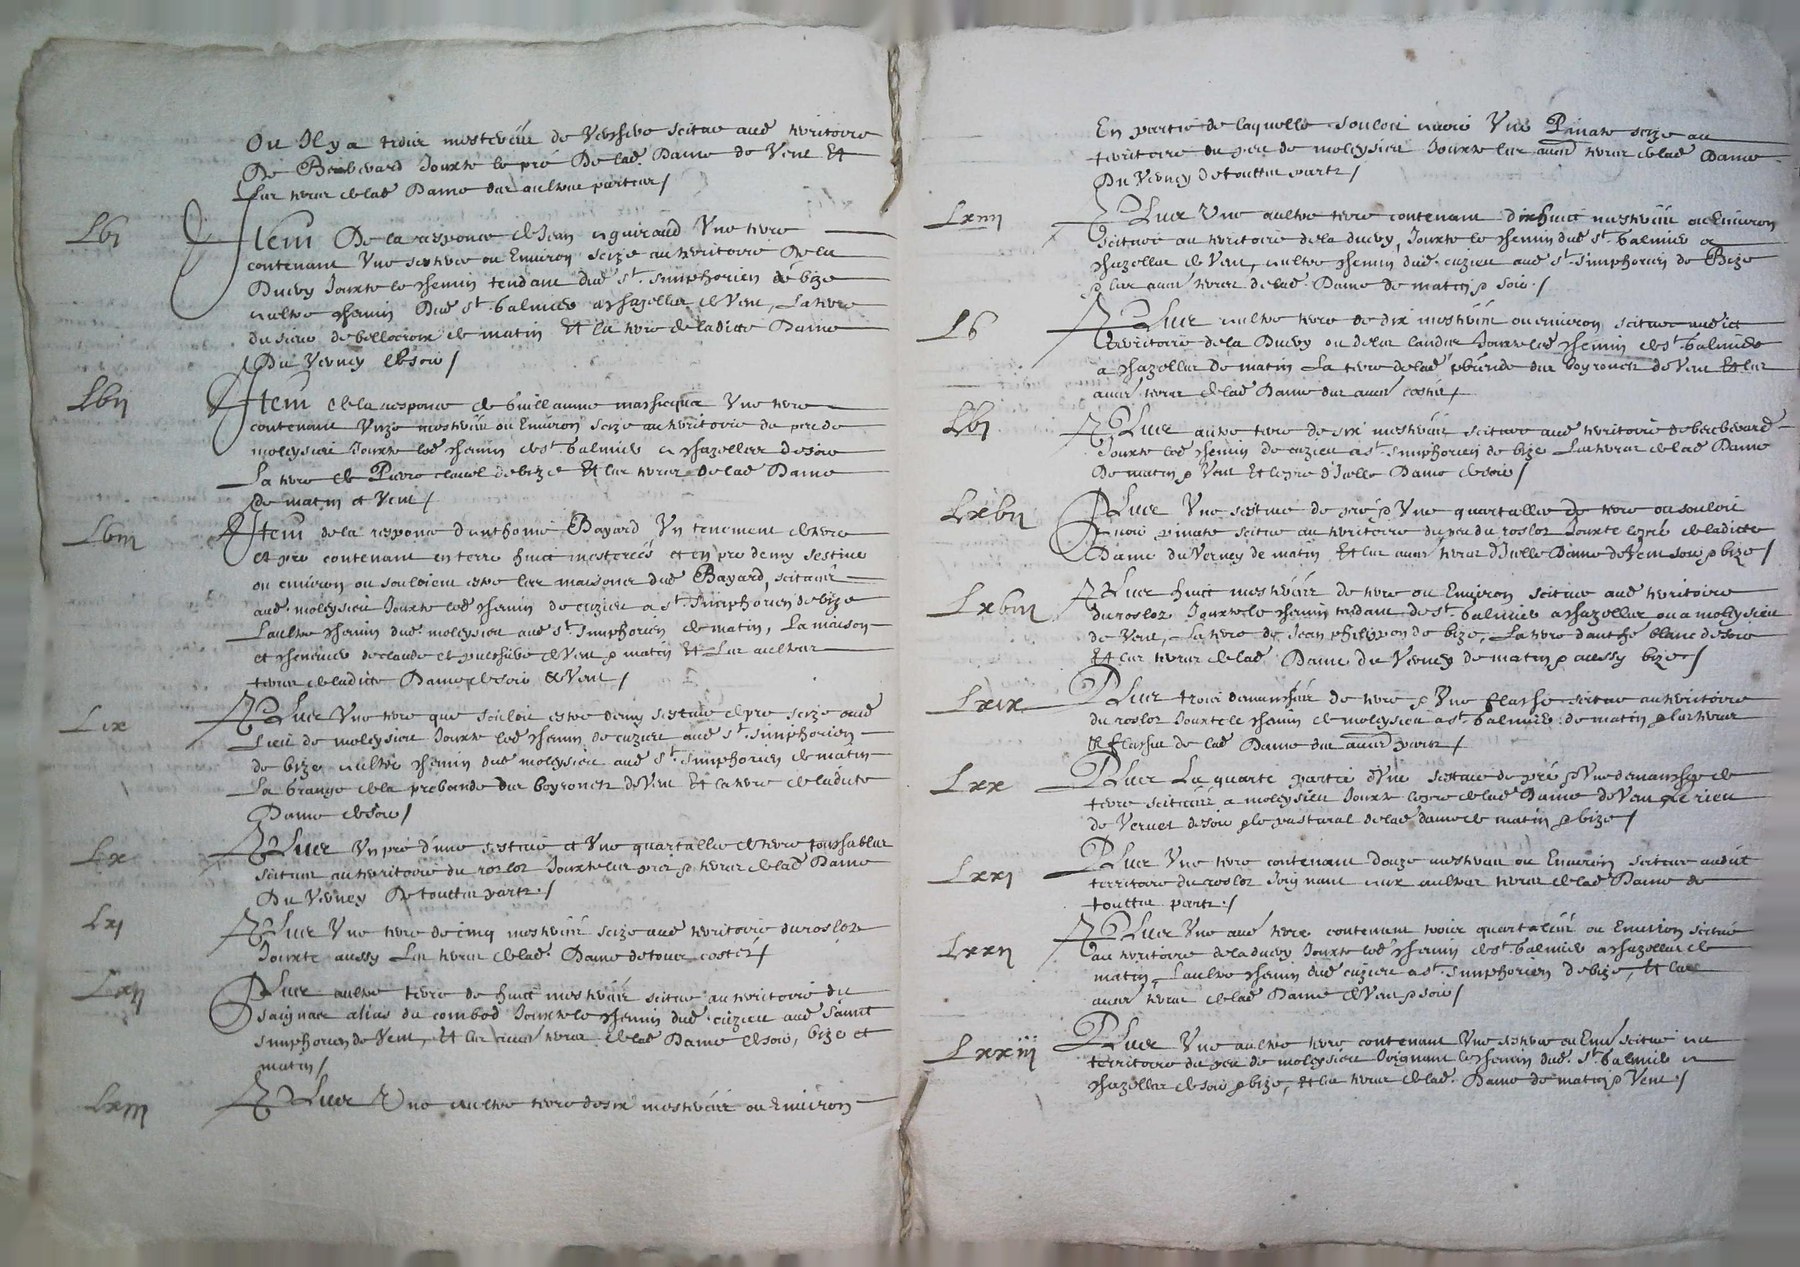 Ou Il y a trois mesterées de Verchere scitue aud territoire
De Brebevard Jouxte le pré De lad. Dame de Vent Et
Les terres de lad Dame des aultres parties /
Lvj
Item De la responce de Jean Aguiraud Vne terre
contenant Vne sesteree ou Environ scize au territoire De la
Ducry Jouxte le chemin tendant dud St. Simphorien de bize
aultre chemin Dud St. Galmier a Chazelles de Vent, La terre
du sieur de bellecroix de matin Et la terre de ladicte Dame
Du Verney de soir /
Lvij
Item de la responce de Guillaume Vne terre
contenant Unze mesterées ou Environ scize au territoire du peu de
moleysieu Jouxte led chemin de St. Galmier a Chazelles de soir
La terre de Pierre de bize Et les terres de lad Dame
De matin et Vent /
Lviij
Item de la responce d'anthoine Bayard Vn tenement de terre
et pré contenant en terre huict mesterées et en pré demy sestine
ou environ ou souloient estre les maisons dud Bayard, scituées
aud. moleysieu Jouxte led chemin de cuzieu a St. Simphorien de bize
L'aultre chemin dud. moleysieu aud St. Simphorien de matin, La maison
et de claude et de Vent & matin Et Les aultres
terres de ladicte Dame de soir & Vent /
Lix
Plus Vne terre que souloit estre demy sestine de pré scize aud
Lieu de moleysieu Jouxte led chemin de cuzieu aud St. Simphorien
de bize aultre chemin dud moleysieu aud St. Simphorien de matin
La grange de la prebande des boyronetz de Vent Et la terre de ladicte
Dame de soir /
Lx
Plus Vn pré d'une sestine et Vne quartallée de terre
scituée au territoire du roslor Jouxte les prés & terres de lad Dame
Du Verney De touttes partz /
Lxj
Plus Vne terre de cinq mesterées scize aud territoire du roslor
Jouxte aussy Les terres de lad. Dame de tous costés /
Lxij
Plus aultre terre de huict mesterées scitue au territoire du
saignac alias du combod Jouxte le chemin dud. cuzieu aud Sainct
Simphorien de Vent, Et les aultres terres de lad Dame de soir, bize et
matin /
Lxiij
Plus Vne aultre terre de six mesterées ou Environ
En partie de laquelle souloit avoir Vne Pinate scize au
territoire du peu de moleysieu Jouxte les aultres terres de lad Dame
Du Verney de touttes partz /
Lxiiij
Plus Vne aultre terre contenant dixhuict mesterées ou Environ
scituée au territoire de la ducry, Jouxte le chemin dud St. Galmier a
chazelles de Vent, aultre chemin dud. cuzieu aud St. Simphorien de Bize
& les aultres terres de lad. Dame de matin & soir. /
Lxv
Plus aultre terre de dix mesterées ou environ scituée audict
territoire de la Ducry ou de las landes Jouxte led chemin de St. Galmier
a chazelles De matin La terre de lad prebende des boyronetz de Vent Et les
aultres terres de lad Dame des aultres costés
Lxvj
Plus aultre terre de six mesterées scituée aud territoire de brebevard
Jouxte led chemin de cuzieu a St. Simphorien de bize Les terres de lad Dame
De matin & Vent Et le pré d'Icelle Dame de soir /
Lxvij
Plus Vne sestine de pré & Vne quartallée de terre ou souloit
avoir pinate scitue au territoire du peu du roslor Jouxte le pré de ladicte
Dame du Verney de matin Et les aultres terres d'Icelle Dame de Vent soir & bize /
Lxviij
Plus huict mesterées de terre ou Environ scitue aud territoire
du roslor Jouxte le chemin tendant de St. Galmier a chazelles ou a moleysieu
de Vent, La terre de Jean philippon de bize, La terre d'anthé blanc de soir
Et les terres de lad. Dame Du Verney de matin & aussy bize /
Lxix
Plus trois de terre & Vne flache scitue au territoire
du roslor Jouxte le chemin de moleysieu a St. Galmier de matin & les terres
& flache de lad Dame des aultres partz /
Lxx
Plus La quarte partie d'Vne sestine de pré & Vne de
terre scituée a moleysieu Jouxte le pré de lad Dame de Vent le rieu
de Vernet de soir & le pastural de lad dame de matin & bize /
Lxxj
Plus Vne terre contenant douze mesterées ou Environ scitue audict
territoire du roslor Joignant aux aultres terres de lad Dame de
touttes partz. /
Lxxij
Plus Vne aultre terre contenant trois quartalées ou Environ scitué
au territoire de la ducry Jouxte led chemin de St. Galmier a chazelles de
matin L'aultre chemin dud cuzieu a St. Simphorien de bize, Et les
aultres terres de lad Dame de Vent & soir /
Lxxiij
Plus Vne aultre terre contenant Vne sesteree ou Env scitue au
territoire du peu de moleysieu Joignant le chemin dud. St. Galmier a
chazelles de soir & bize, Et les terres de lad. Dame de matin & Vent. /